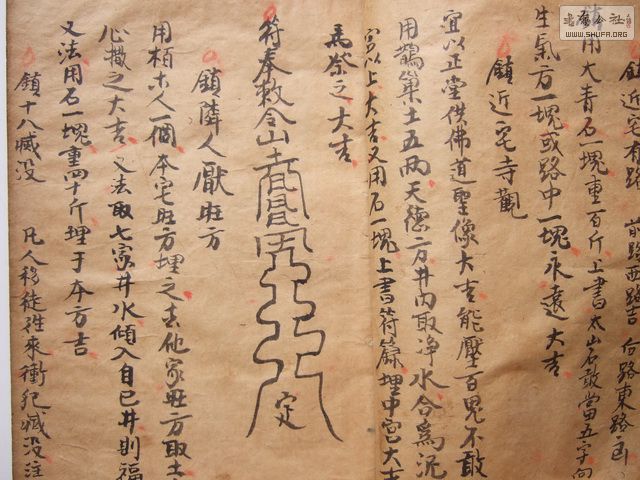 鎮近宅有路 前路西路吉 向路東路凶
用大青石一塊重百斤上書太山石敢當五字向
生氣方一塊或路中一塊永遠大吉
鎮近宅寺觀
宜以正堂供佛道聖像大吉能壓百鬼不敢
用鵲巢土五兩天德方井內取净水合為泥
宮以上大吉又用石一塊上書符籙埋中宮大吉
馬祭之大吉
符奉敕令山
定
鎮隣人厭旺方
用栢木人一個本宅旺方埋之去他家旺方取土
心撒之大吉又法取七家井水傾入自己井則福
又法用石一塊重四十斤埋于本方吉
鎮十八臧没 凡人移徙往來衝犯臧没注
書法公社
WWW.SHUFA.ORG